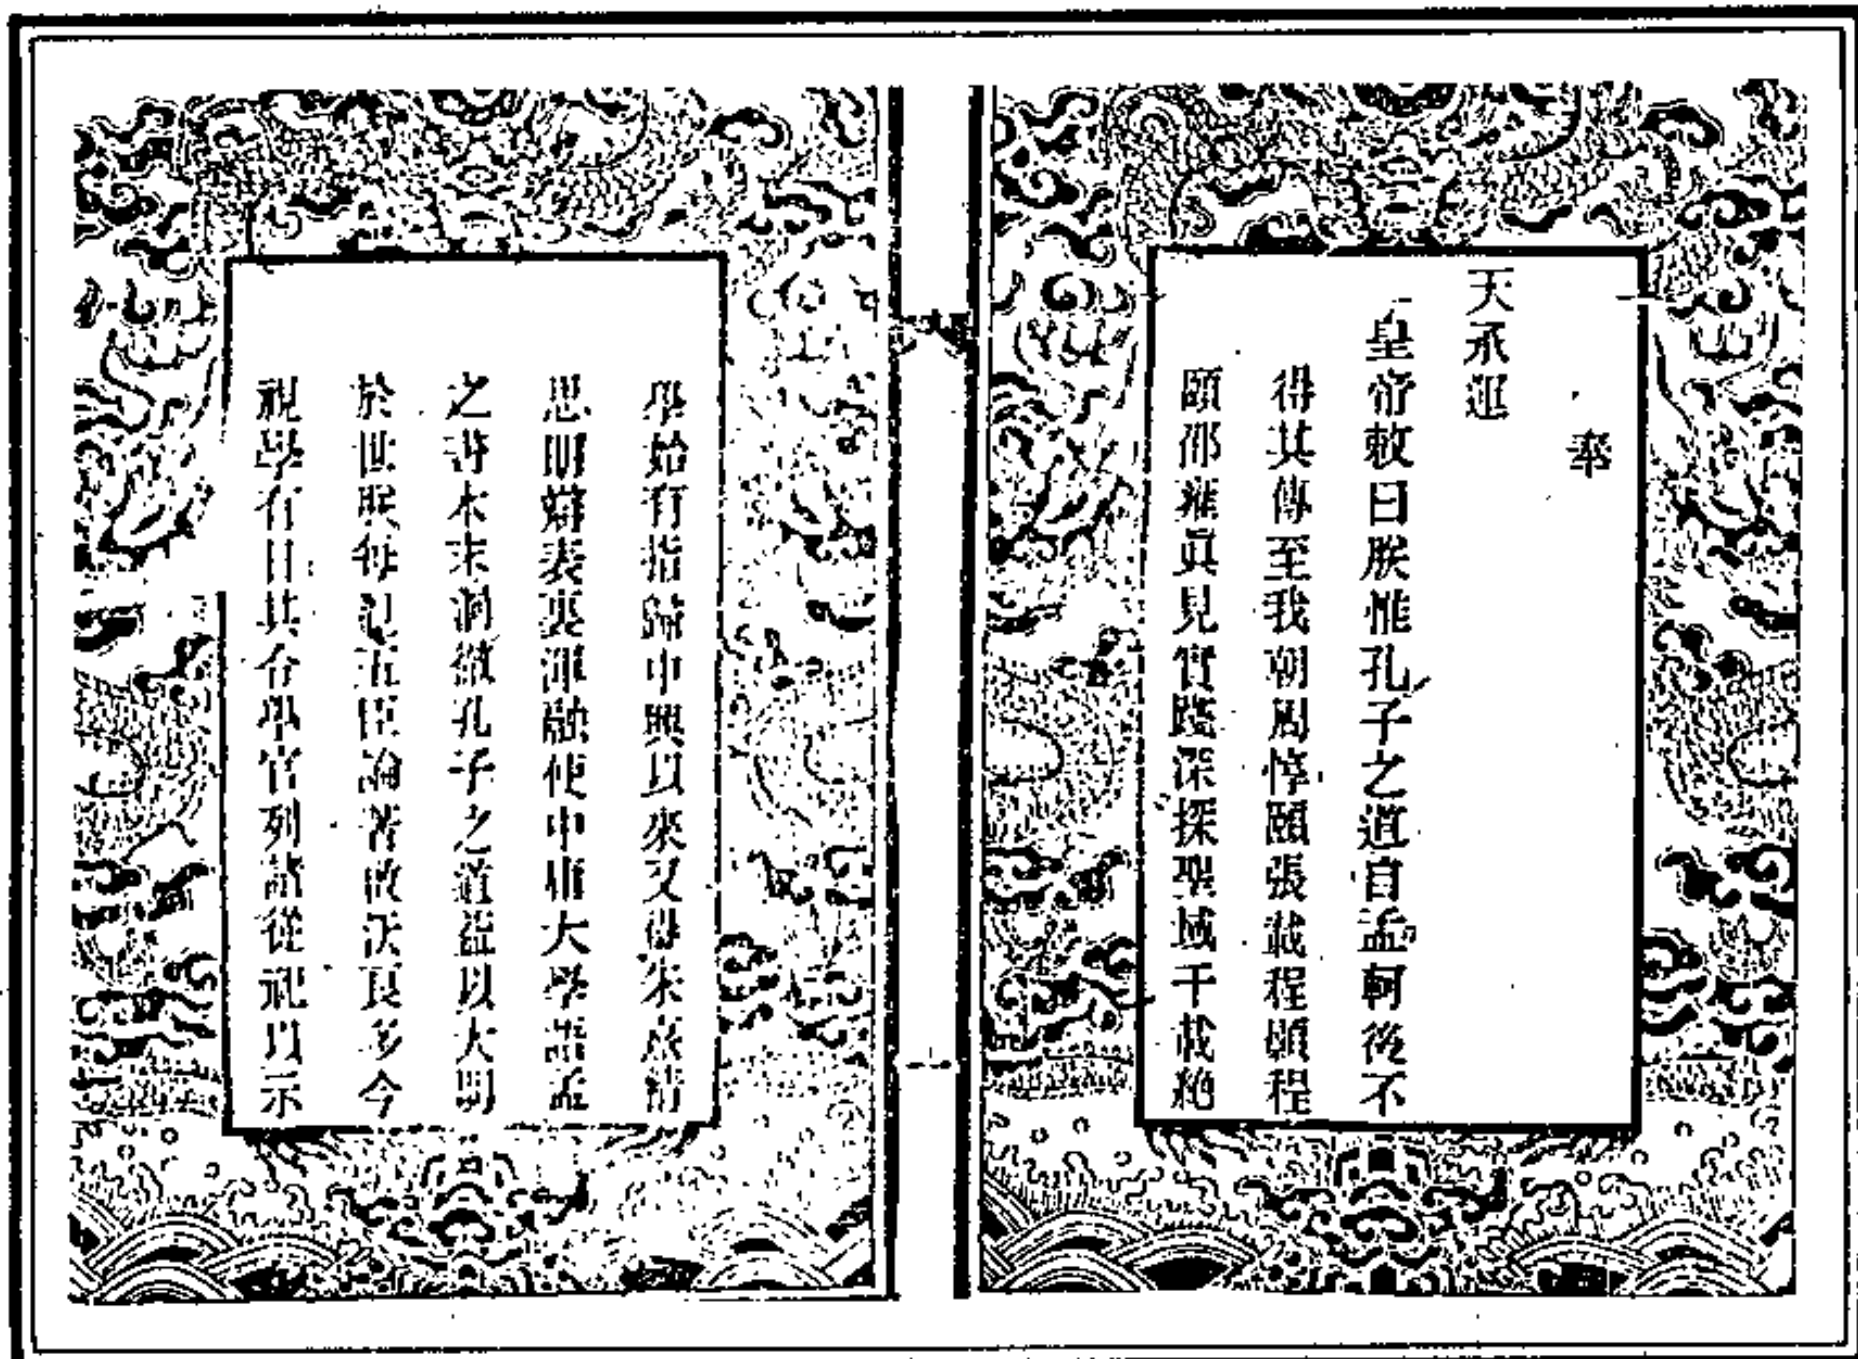 奉
天承運
皇帝敕曰朕惟孔子之道自孟軻後不
得其傳至我朝周惇頤張載程顥程
頤邵雍眞見實踐深探聖域千載絶
學始有指歸中興以來又得朱熹精
思明辯表裏渾融使中庸大學語孟
之書本末洞徹孔子之道益以大明
於世朕每觀五臣論著啟沃良多今
視學有日其令學官列諸從祀以示